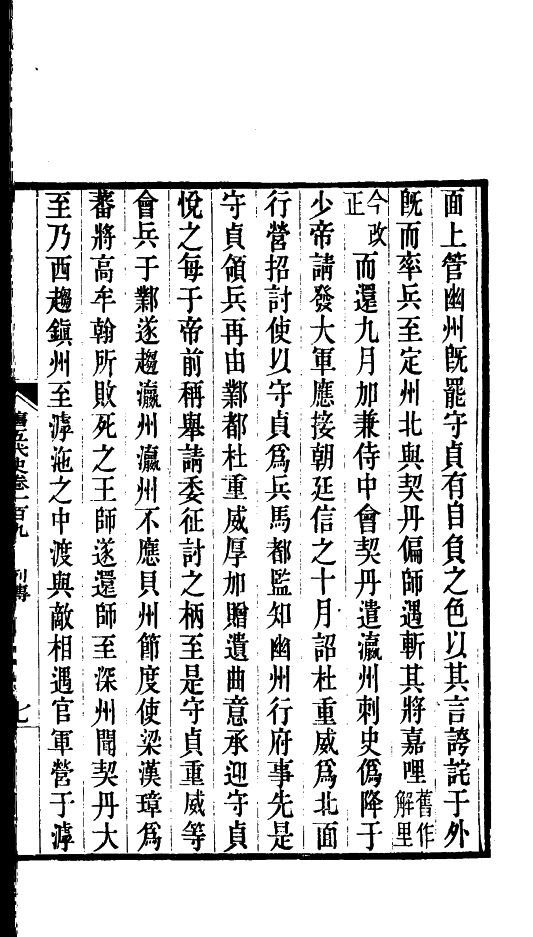 面上管幽州旣罷守貞有自負之色以其言誇詫于外
旣而率兵至定州北與契丹偏師遇斬其將嘉哩舊作解里
今改正而還九月加兼侍中會契丹遣瀛州刺史僞降于
少帝請發大軍應接朝廷信之十月詔杜重威爲北面
行營招討使以守貞爲兵馬都監知幽州行府事先是
守貞領兵再由鄴都杜重威厚加贈遺曲意承迎守貞
悅之每于帝前稱舉請委征討之柄至是守貞重威等
會兵于鄴遂趨瀛州瀛州不應貝州節度使梁漢璋爲
蕃將高牟翰所敗死之王師遂還師至深州聞契丹大
至乃西趨鎭州至滹沱之中渡與敵相遇官軍營于滹
舊五代史卷一百九 列傳 七